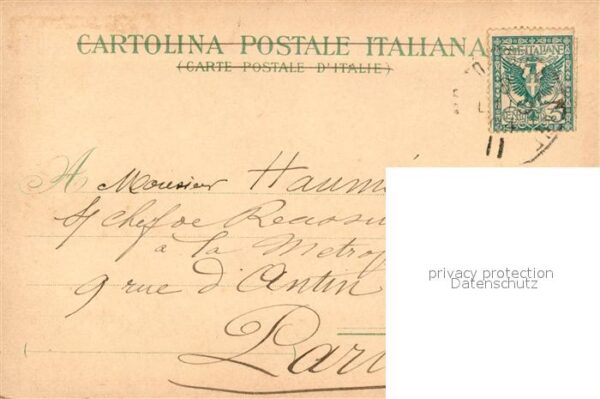 CARTOLINA POSTALE ITALIANA
(CARTE POSTALE D'ITALIE)
POSTE ITALIANE
5
A Monsieur Haumé
S/ Chef de Reassu
à la Metrop
9 rue d'Antin
Pari
privacy protection
Datenschutz